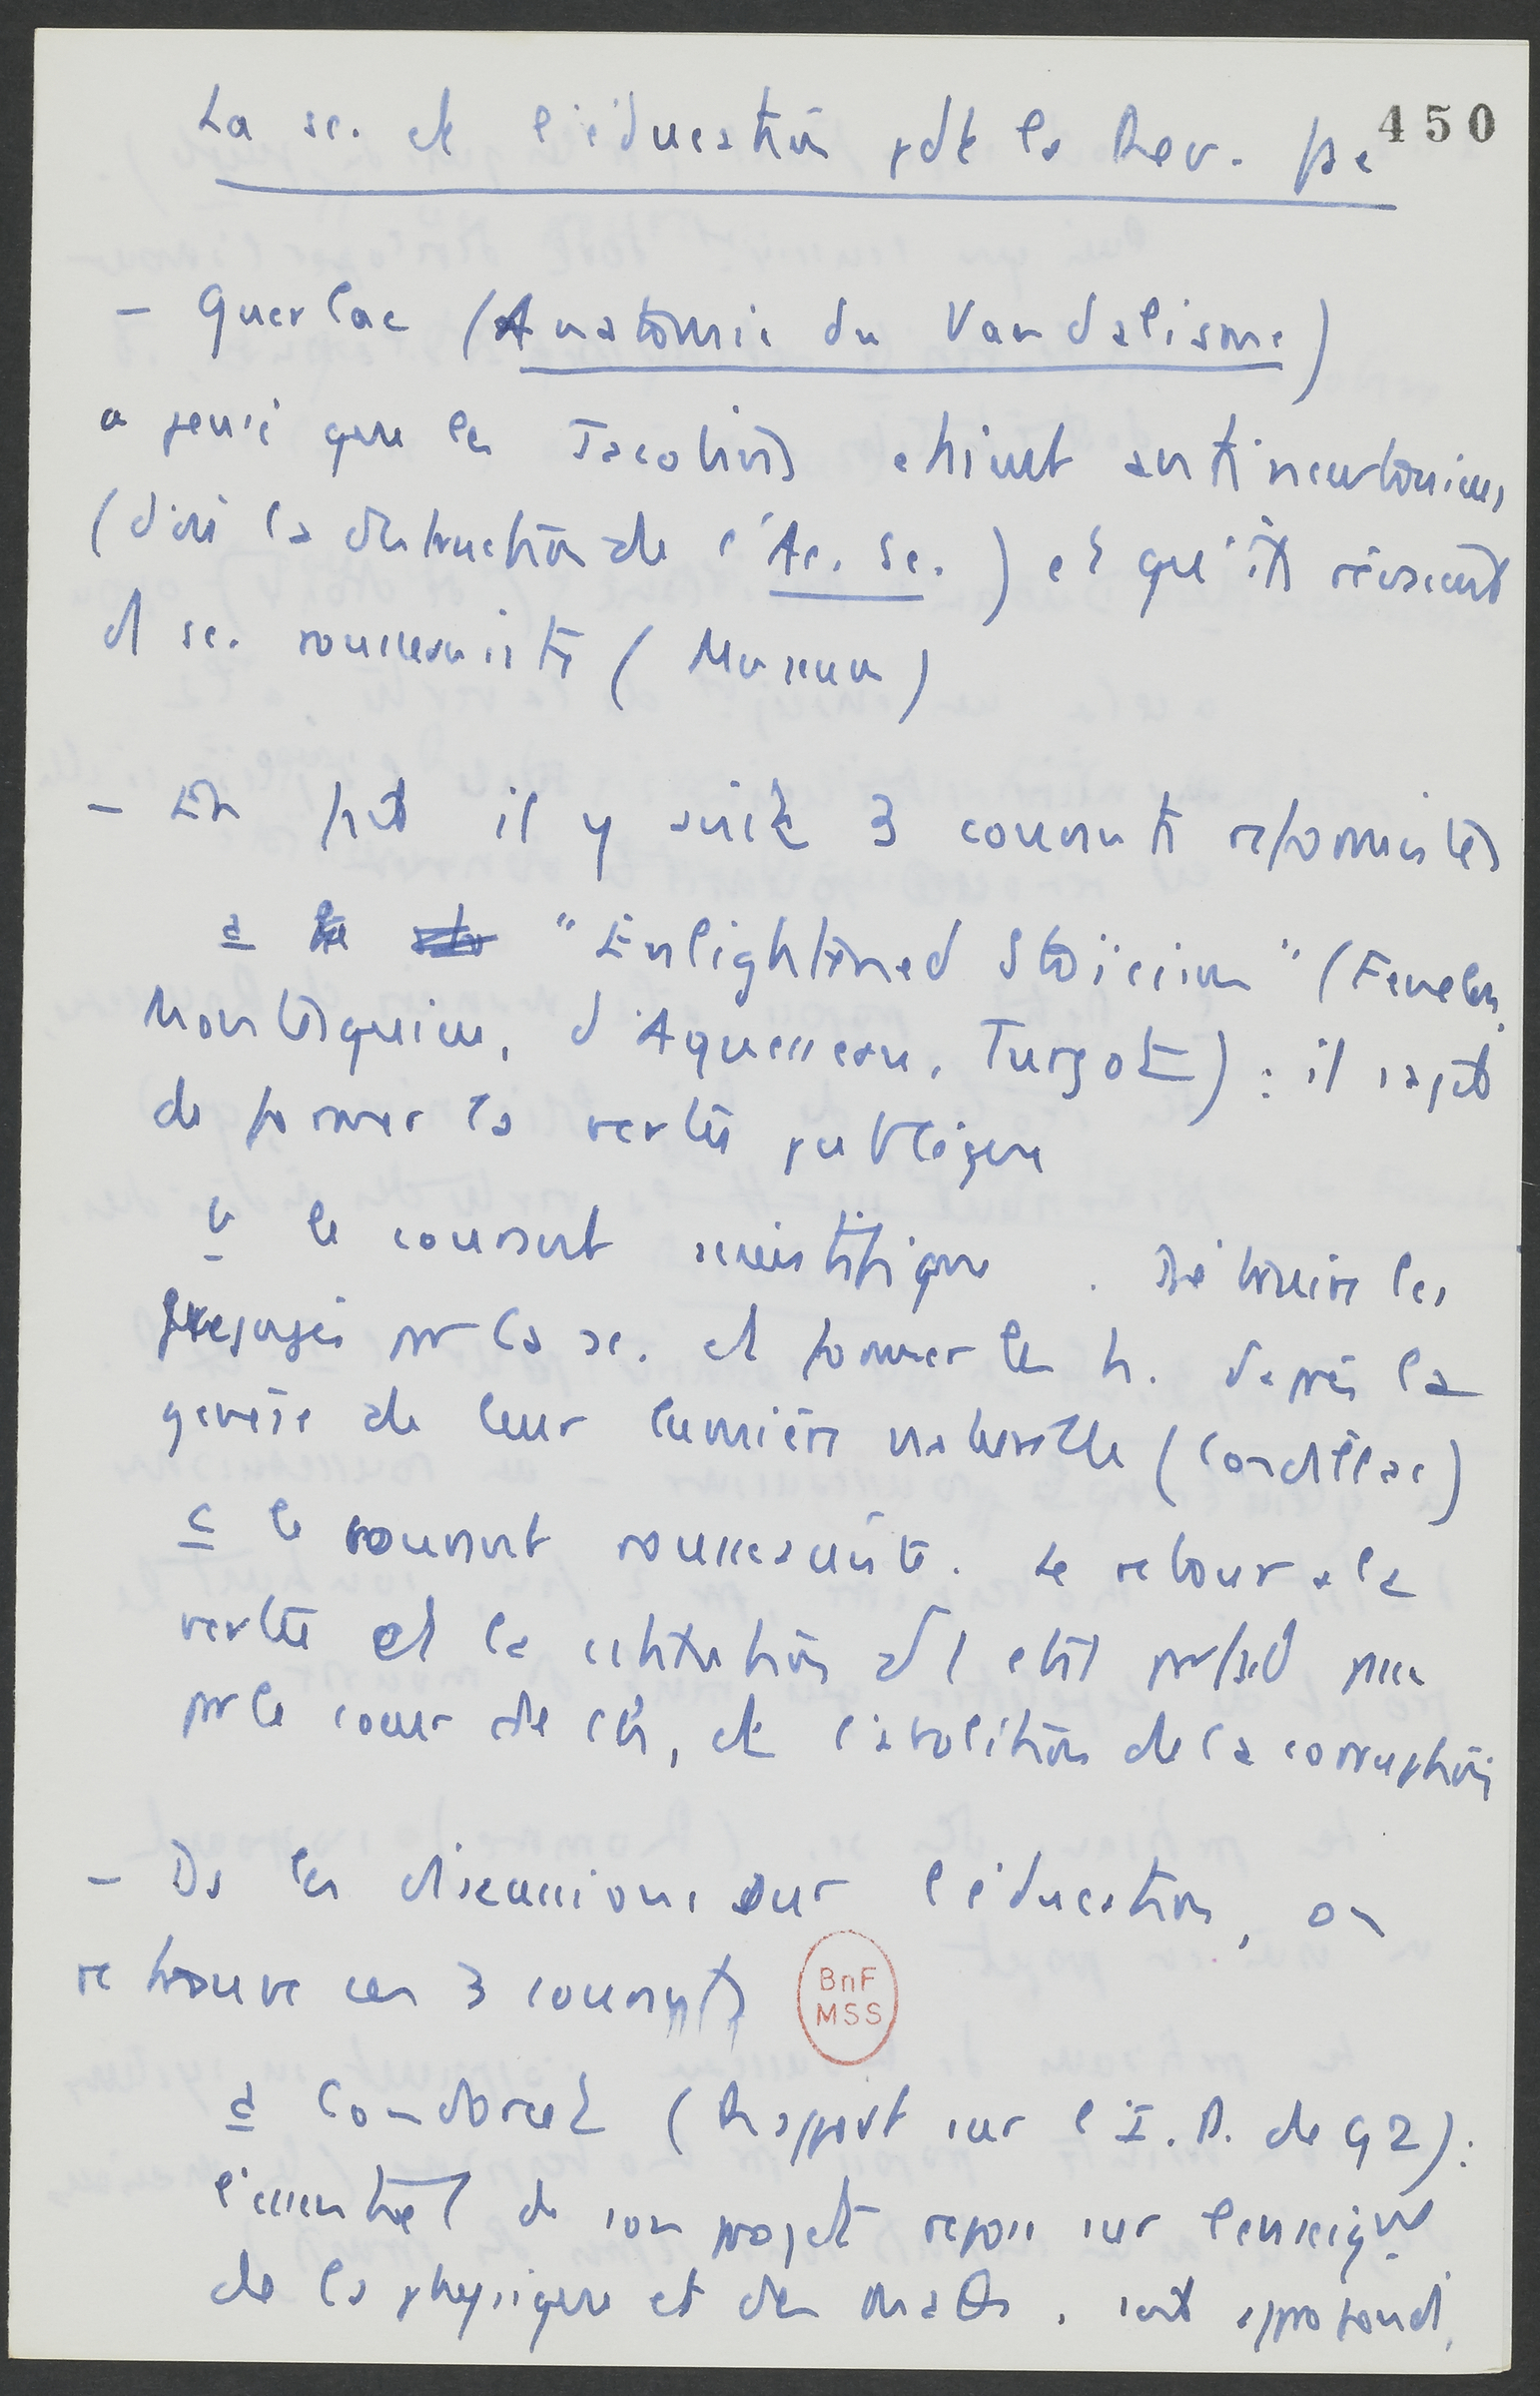 La sc. et l'éducation pdt la Rev. fse
450
- Guerlac (Anatomie du Vandalisme)
a pensé que les Jacobins etaient antinewtoniens
(d'où la destruction de l'Ac. Sc.) et qu'ils révaient
d sc. rousseauiste (Museum)
- En fait il y avait 3 courants reformistes
a "Enlightened Stoicism" (Fenelon,
Montesquieu, d'Aguesseau, Turgot) : il s'agit
de former la vertu publique
b le courant scientifique. Détruire les
prejugés par la sc. et former les h. d'après la
genèse de leur lumière naturelle (Condillac)
c le courant rousseauiste. Le retour a la
vertu et la d'1 etat parfait passe
par le coeur de l'h, et l'abolition de la corruption
- Ds les discussions sur l'éducation, on
retrouve ces 3 courants
BnF
MSS
a Condorcet (Rapport sur l'I.P. de 92) :
l'essentiel de son projet repose sur l'enseignt
de la physique et des maths. approfond.